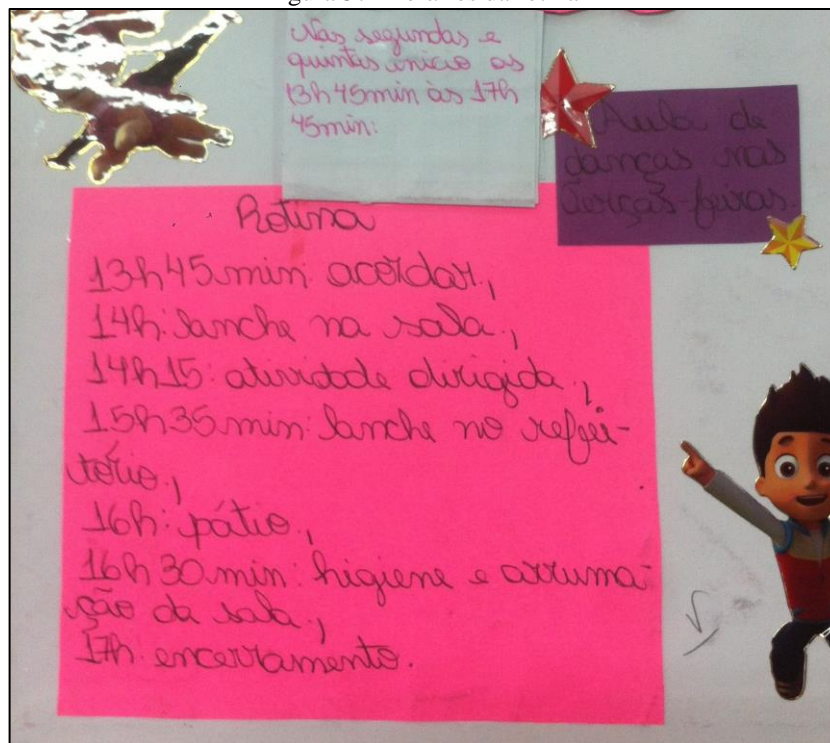 Nas segundas e
quintas início as
13h45min às 17h
45min:
Aula de
danças nas
terças-feiras.
Rotina
13h45min: acordar;
14h: lanche na sala;
14h15: atividade dirigida;
15h35min: lanche no refei-
tório;
16h: pátio;
16h30min: higiene e arruma-
ção da sala;
17h: encerramento.